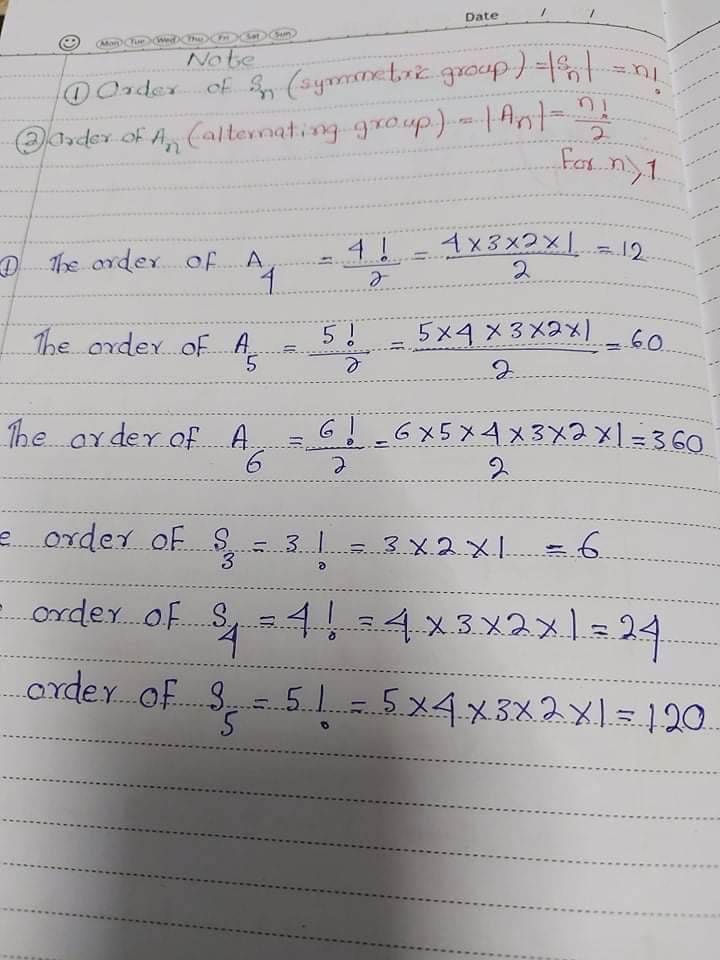 Date / /
Mon Tue Wed Thu Fri Sat Sun
Note
① Order of Sn (symmetric group) = |Sn| = n!
② Order of An (alternating group) = |An| = n!/2
For n>1
① The order of A4 = 4!/2 = 4×3×2×1/2 = 12
The order of A5 = 5!/2 = 5×4×3×2×1/2 = 60
The order of A6 = 6!/2 = 6×5×4×3×2×1/2 = 360
e order of S3 = 3! = 3×2×1 = 6
order of S4 = 4! = 4×3×2×1 = 24
order of S5 = 5! = 5×4×3×2×1 = 120